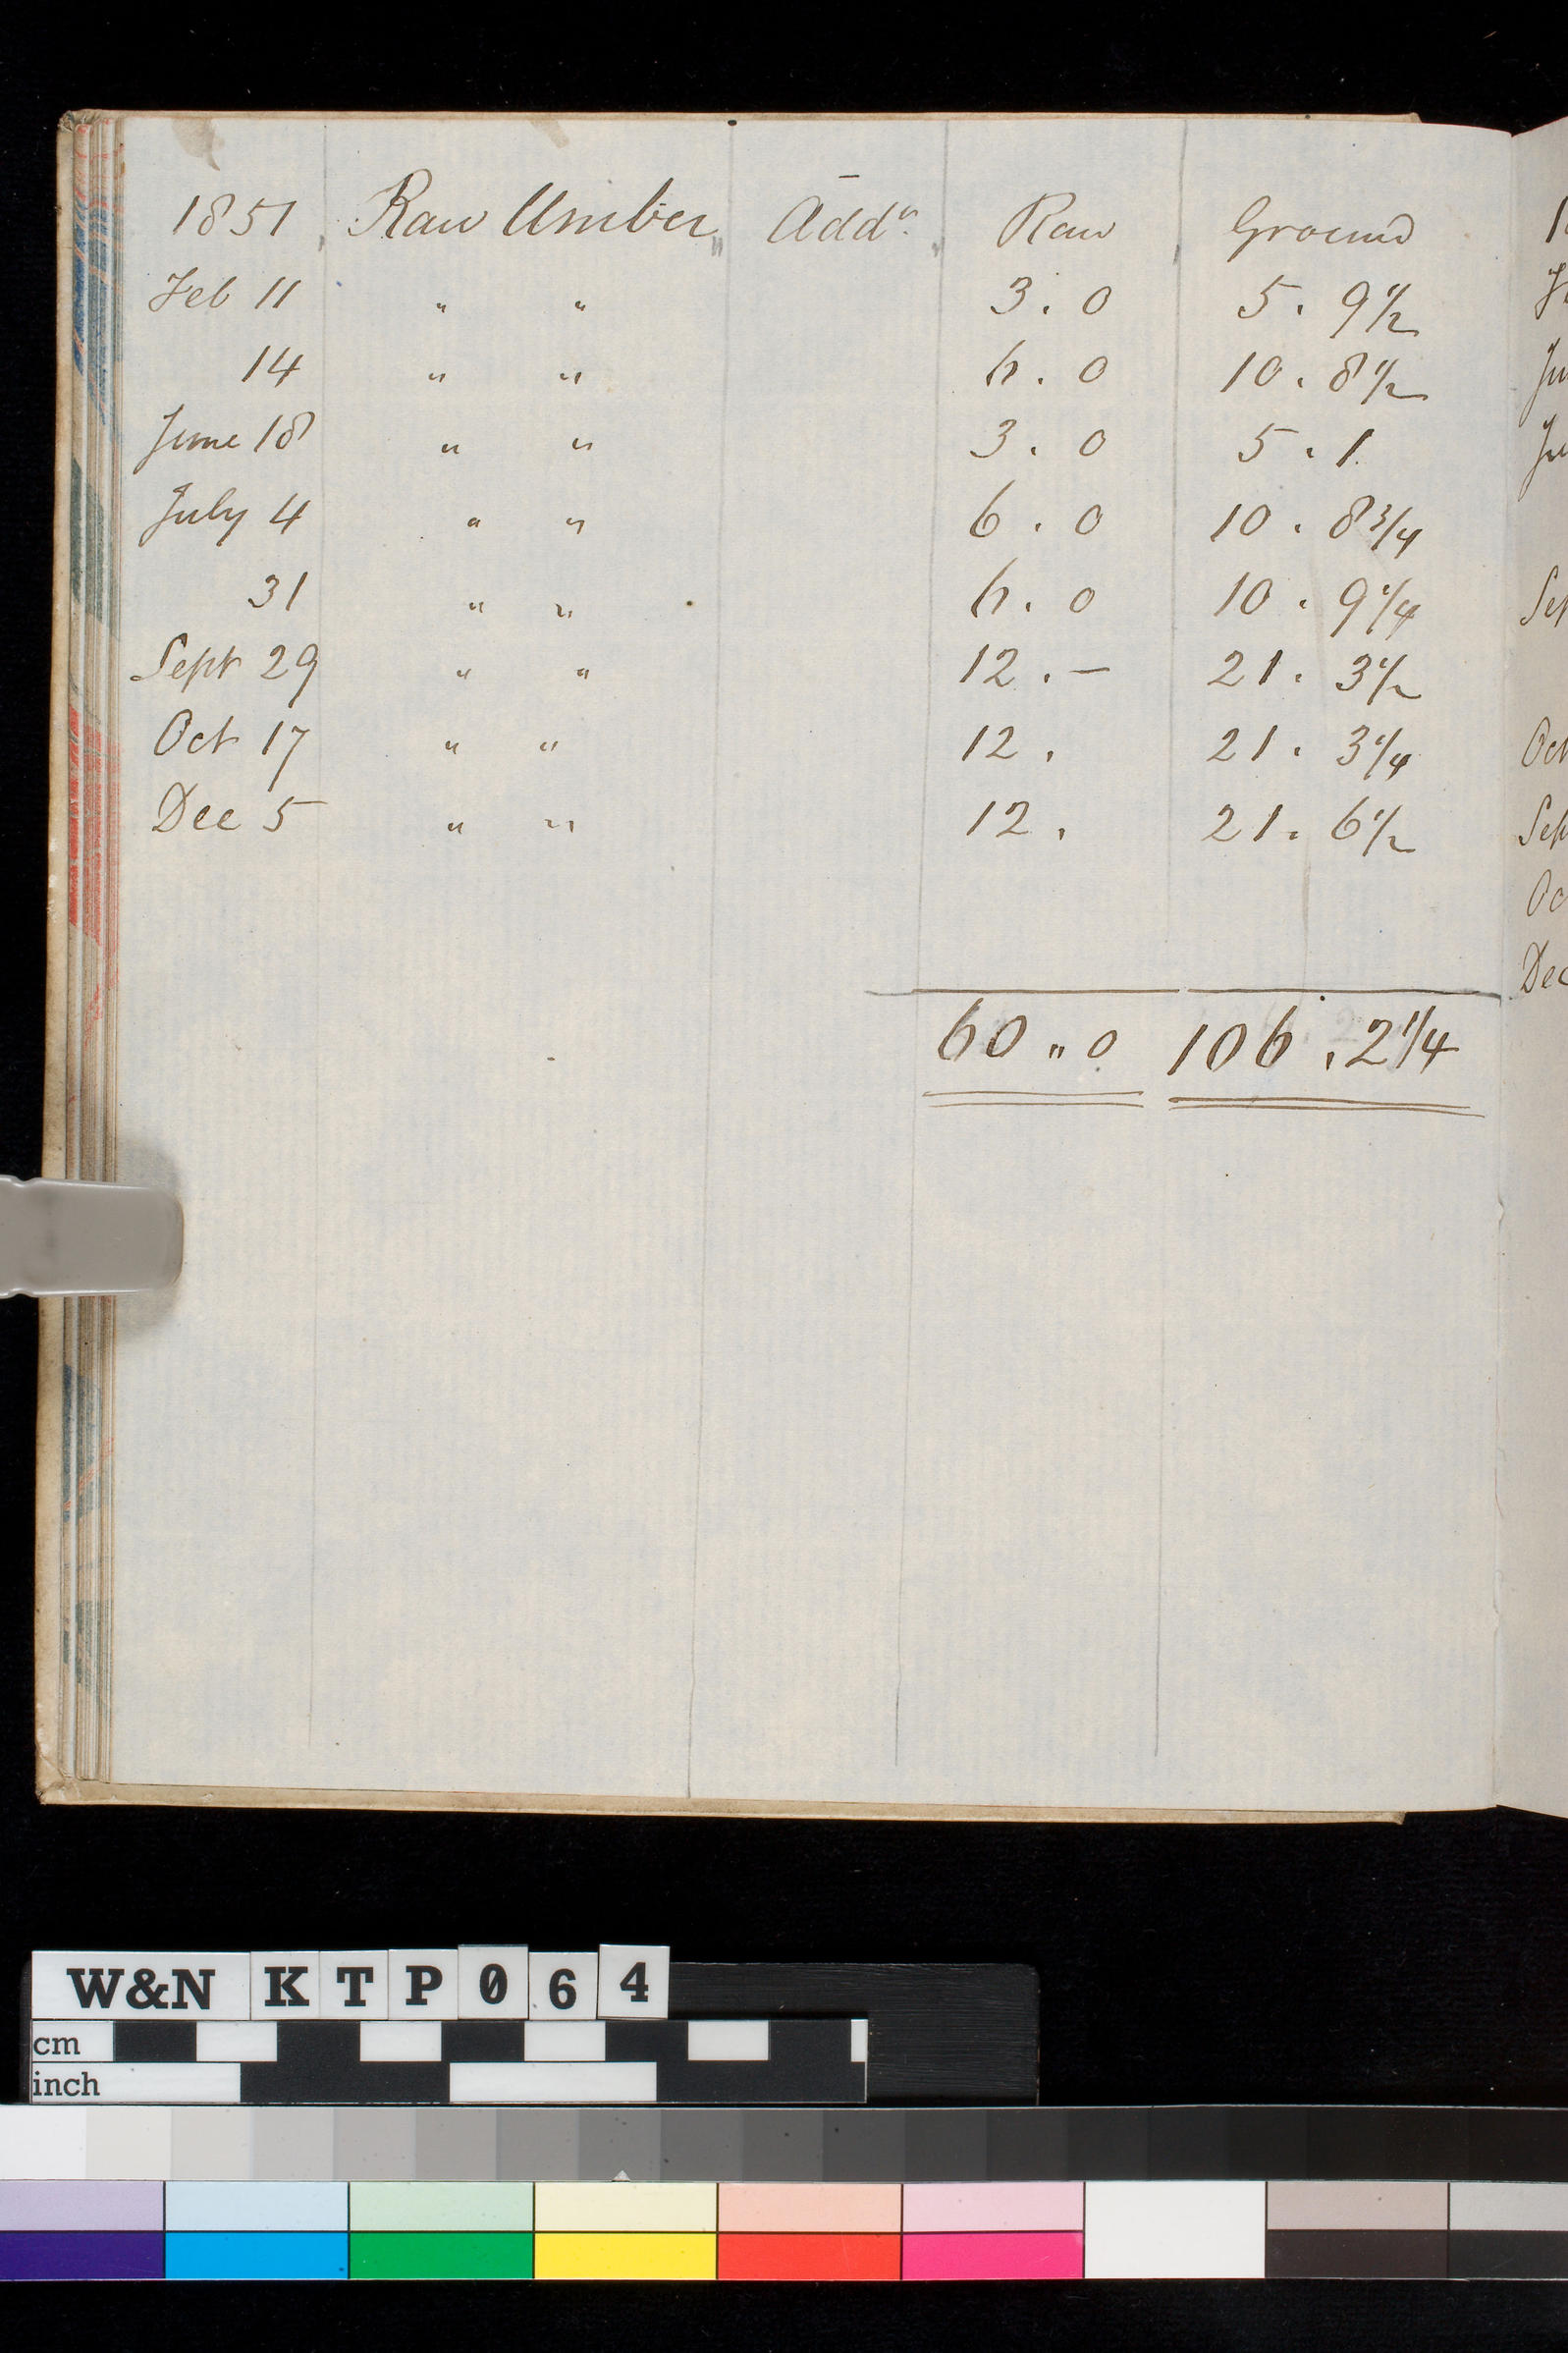 1851 Raw Umber Addn. Raw Ground
Feb 11 " " 3 . 0 5 . 9 1/2
14 " " 6 . 0 10 . 8 1/2
June 18 " " 3 . 0 5 . 1
July 4 " " 6 . 0 10 . 8 3/4
31 " " 6 . 0 10 . 9 1/4
Sept 29 " " 12 . — 21 . 3 1/2
Oct 17 " " 12 . 21 . 3 1/4
Dec 5 " " 12 . 21 . 6 1/2
60 " 0 106 . 2 1/4
Oct
Dec
W&N KTP064
cm
inch